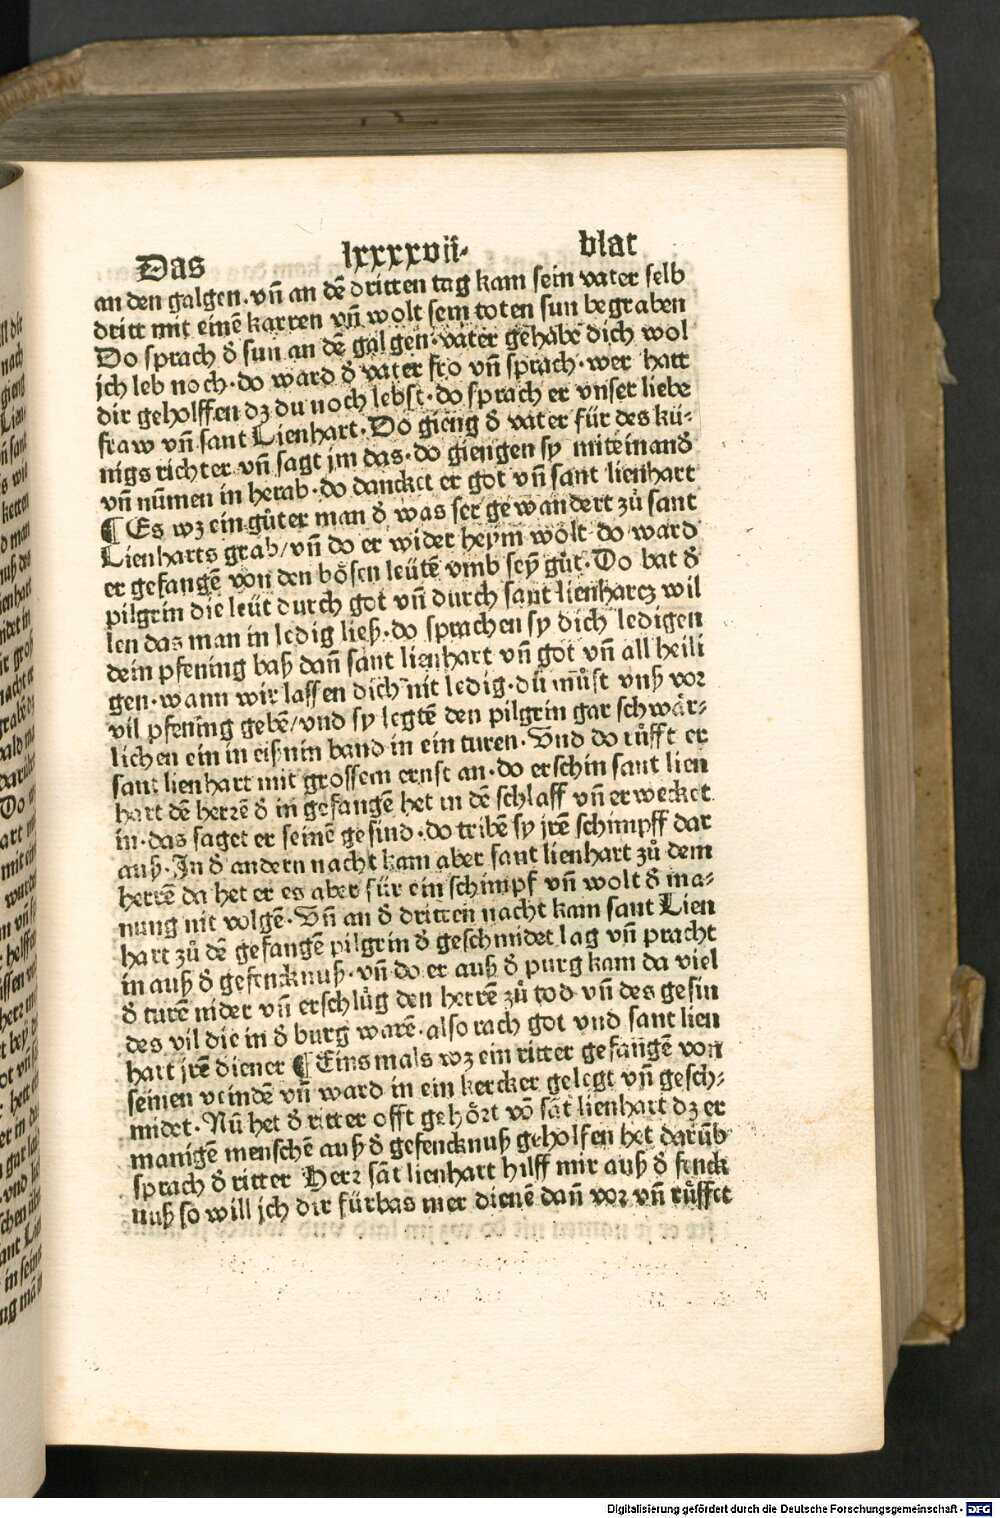 Das lxxxxvii· blat
an den galgen. vñ an dē dritten tag kam sein vater selb
dritt mit einē karren vñ wolt sein toten sun begraben
Do sprach d̕ sun an dē galgen·vater gehabe dich wol
jch leb noch·do ward d̕ vater fro vñ sprach·wer hatt
dir geholffen dz du noch lebst·do sprach er vnser liebe
fraw vñ sant Lienhart·Do gieng d̕ vater für des kü⸗
nigs richter vñ sagt jm das·do giengen sy miteinand̕
vñ nūmen in herab·do dancket er got vñ sant lienhart
¶ Es wz ein gůter man d̕ was ser gewandert zů sant
Lienharts grab/vñ do er wider heym wolt do ward
er gefangē von den bösen leütē vmb sey̅ gůt·Do bat d̕
pilgrin die leüt durch got vñ durch sant lienhartz wil
len das man in ledig ließ·do sprachen sy dich ledigen
dein pfening baß dañ sant lienhart vñ got vñ all heili
gen·wann wir lassen dich nit ledig·du můst vnß vor
vil pfening gebē/vnd sy legtē den pilgrin gar schwär⸗
lichen ein in eißnin band in ein turen·Vnd do růfft er
sant lienhart mit grossem ernst an·do erschin sant lien
hart dē herrē d̕ in gefangē het in dē schlaff vñ erwecket
in·das saget er seinē gesind·do tribē sy jrē schimpff dar
auß·In d̕ andern nacht kam aber sant lienhart zů dem
herrē da het er es aber für ein schimpf vñ wolt d̕ ma⸗
nung nit volgē·Vñ an d̕ dritten nacht kam sant Lien
hart zů dē gefangē pilgrin d̕ geschmidet lag vñ pracht
in auß d̕ gefencknuß·vñ do er auß d̕ purg kam da viel
d̕ turē nider vñ erschlůg den herrē zů tod vñ des gesin
des vil die in d̕ burg warē·also rach got vnd sant lien
hart jrē diener ¶ Eins mals wz ein ritter gefangē von
seinen veindē vñ ward in ein kercker gelegt vñ gesch⸗
midet·Nū het d̕ ritter offt gehört vō sāt lienhart dz er
manigē menschē auß d̕ gefencknuß geholfen het darūb
sprach d̕ ritter Herr sāt lienhart hilff mir auß d̕ fenck
nuß so will jch dir fürbas mer dienē dañ vor vñ růffet
Digitalisierung gefördert durch die Deutsche Forschungsgemeinschaft - DFG